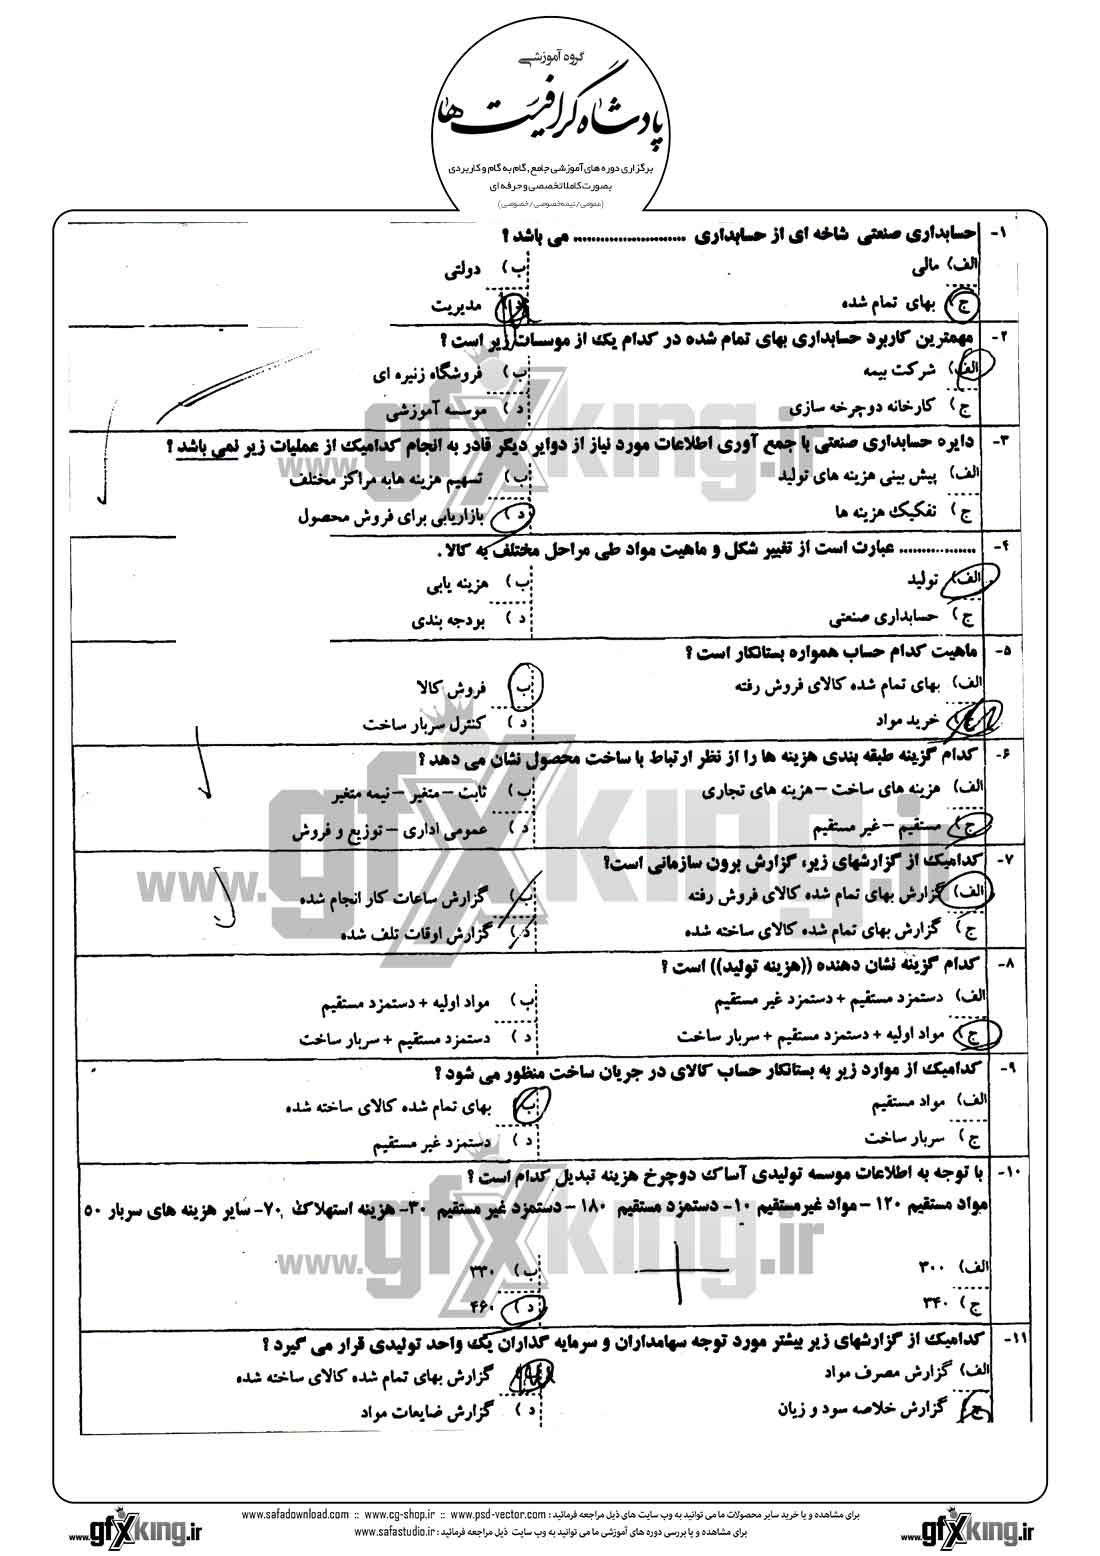 گروه آموزشی
پادشاه گرافیست ها
برگزاری دوره های آموزشی جامع, گام به گام و کاربردی
بصورت کاملا تخصصی و حرفه ای
(عمومی/نیمه خصوصی/خصوصی)
۱- حسابداری صنعتی شاخه ای از حسابداری ......................... می باشد ؟
الف) مالی ب) دولتی
ج) بهای تمام شده د) مدیریت
۲- مهمترین کاربرد حسابداری بهای تمام شده در کدام یک از موسسات زیر است ؟
الف) شرکت بیمه ب) فروشگاه زنیره ای
ج) کارخانه دوچرخه سازی د) موسسه آموزشی
۳- دایره حسابداری صنعتی با جمع آوری اطلاعات مورد نیاز از دوایر دیگر قادر به انجام کدامیک از عملیات زیر نمی باشد ؟
الف) پیش بینی هزینه های تولید ب) تسهیم هزینه هابه مراکز مختلف
ج) تفکیک هزینه ها د) بازاریابی برای فروش محصول
۴- ................. عبارت است از تغییر شکل و ماهیت مواد طی مراحل مختلف به کالا .
الف) تولید ب) هزینه یابی
ج) حسابداری صنعتی د) بودجه بندی
۵- ماهیت کدام حساب همواره بستانکار است ؟
الف) بهای تمام شده کالای فروش رفته ب) فروش کالا
ج) خرید مواد د) کنترل سربار ساخت
۶- کدام گزینه طبقه بندی هزینه ها را از نظر ارتباط با ساخت محصول نشان می دهد ؟
الف) هزینه های ساخت – هزینه های تجاری ب) ثابت – متغیر – نیمه متغیر
ج) مستقیم – غیر مستقیم د) عمومی اداری – توزیع و فروش
۷- کدامیک از گزارشهای زیر، گزارش برون سازمانی است؟
الف) گزارش بهای تمام شده کالای فروش رفته ب) گزارش ساعات کار انجام شده
ج) گزارش بهای تمام شده کالای ساخته شده د) گزارش اوقات تلف شده
۸- کدام گزینه نشان دهنده ((هزینه تولید)) است ؟
الف) دستمزد مستقیم + دستمزد غیر مستقیم ب) مواد اولیه + دستمزد مستقیم
ج) مواد اولیه + دستمزد مستقیم + سربار ساخت د) دستمزد مستقیم + سربار ساخت
۹- کدامیک از موارد زیر به بستانکار حساب کالای در جریان ساخت منظور می شود ؟
الف) مواد مستقیم ب) بهای تمام شده کالای ساخته شده
ج) سربار ساخت د) دستمزد غیر مستقیم
۱۰- با توجه به اطلاعات موسسه تولیدی آساک دوچرخ هزینه تبدیل کدام است ؟
مواد مستقیم ۱۲۰ – مواد غیرمستقیم ۱۰- دستمزد مستقیم ۱۸۰ – دستمزد غیر مستقیم ۳۰- هزینه استهلاک ۷۰- سایر هزینه های سربار ۵۰
الف) ۳۰۰ ب) ۳۳۰
ج) ۳۴۰ د) ۴۶۰
۱۱- کدامیک از گزارشهای زیر بیشتر مورد توجه سهامداران و سرمایه گذاران یک واحد تولیدی قرار می گیرد ؟
الف) گزارش مصرف مواد ب) گزارش بهای تمام شده کالای ساخته شده
ج) گزارش خلاصه سود و زیان د) گزارش ضایعات مواد
www.gfxking.ir
www.gfxking.ir
www.gfxking.ir
برای مشاهده و یا خرید سایر محصولات ما می توانید به وب سایت های ذیل مراجعه فرمائید : www.safadownload.com :: www.cg-shop.ir :: www.psd-vector.com
برای مشاهده و یا بررسی دوره های آموزشی ما می توانید به وب سایت ذیل مراجعه فرمائید : www.safastudio.ir
www.gfxking.ir
www.gfxking.ir